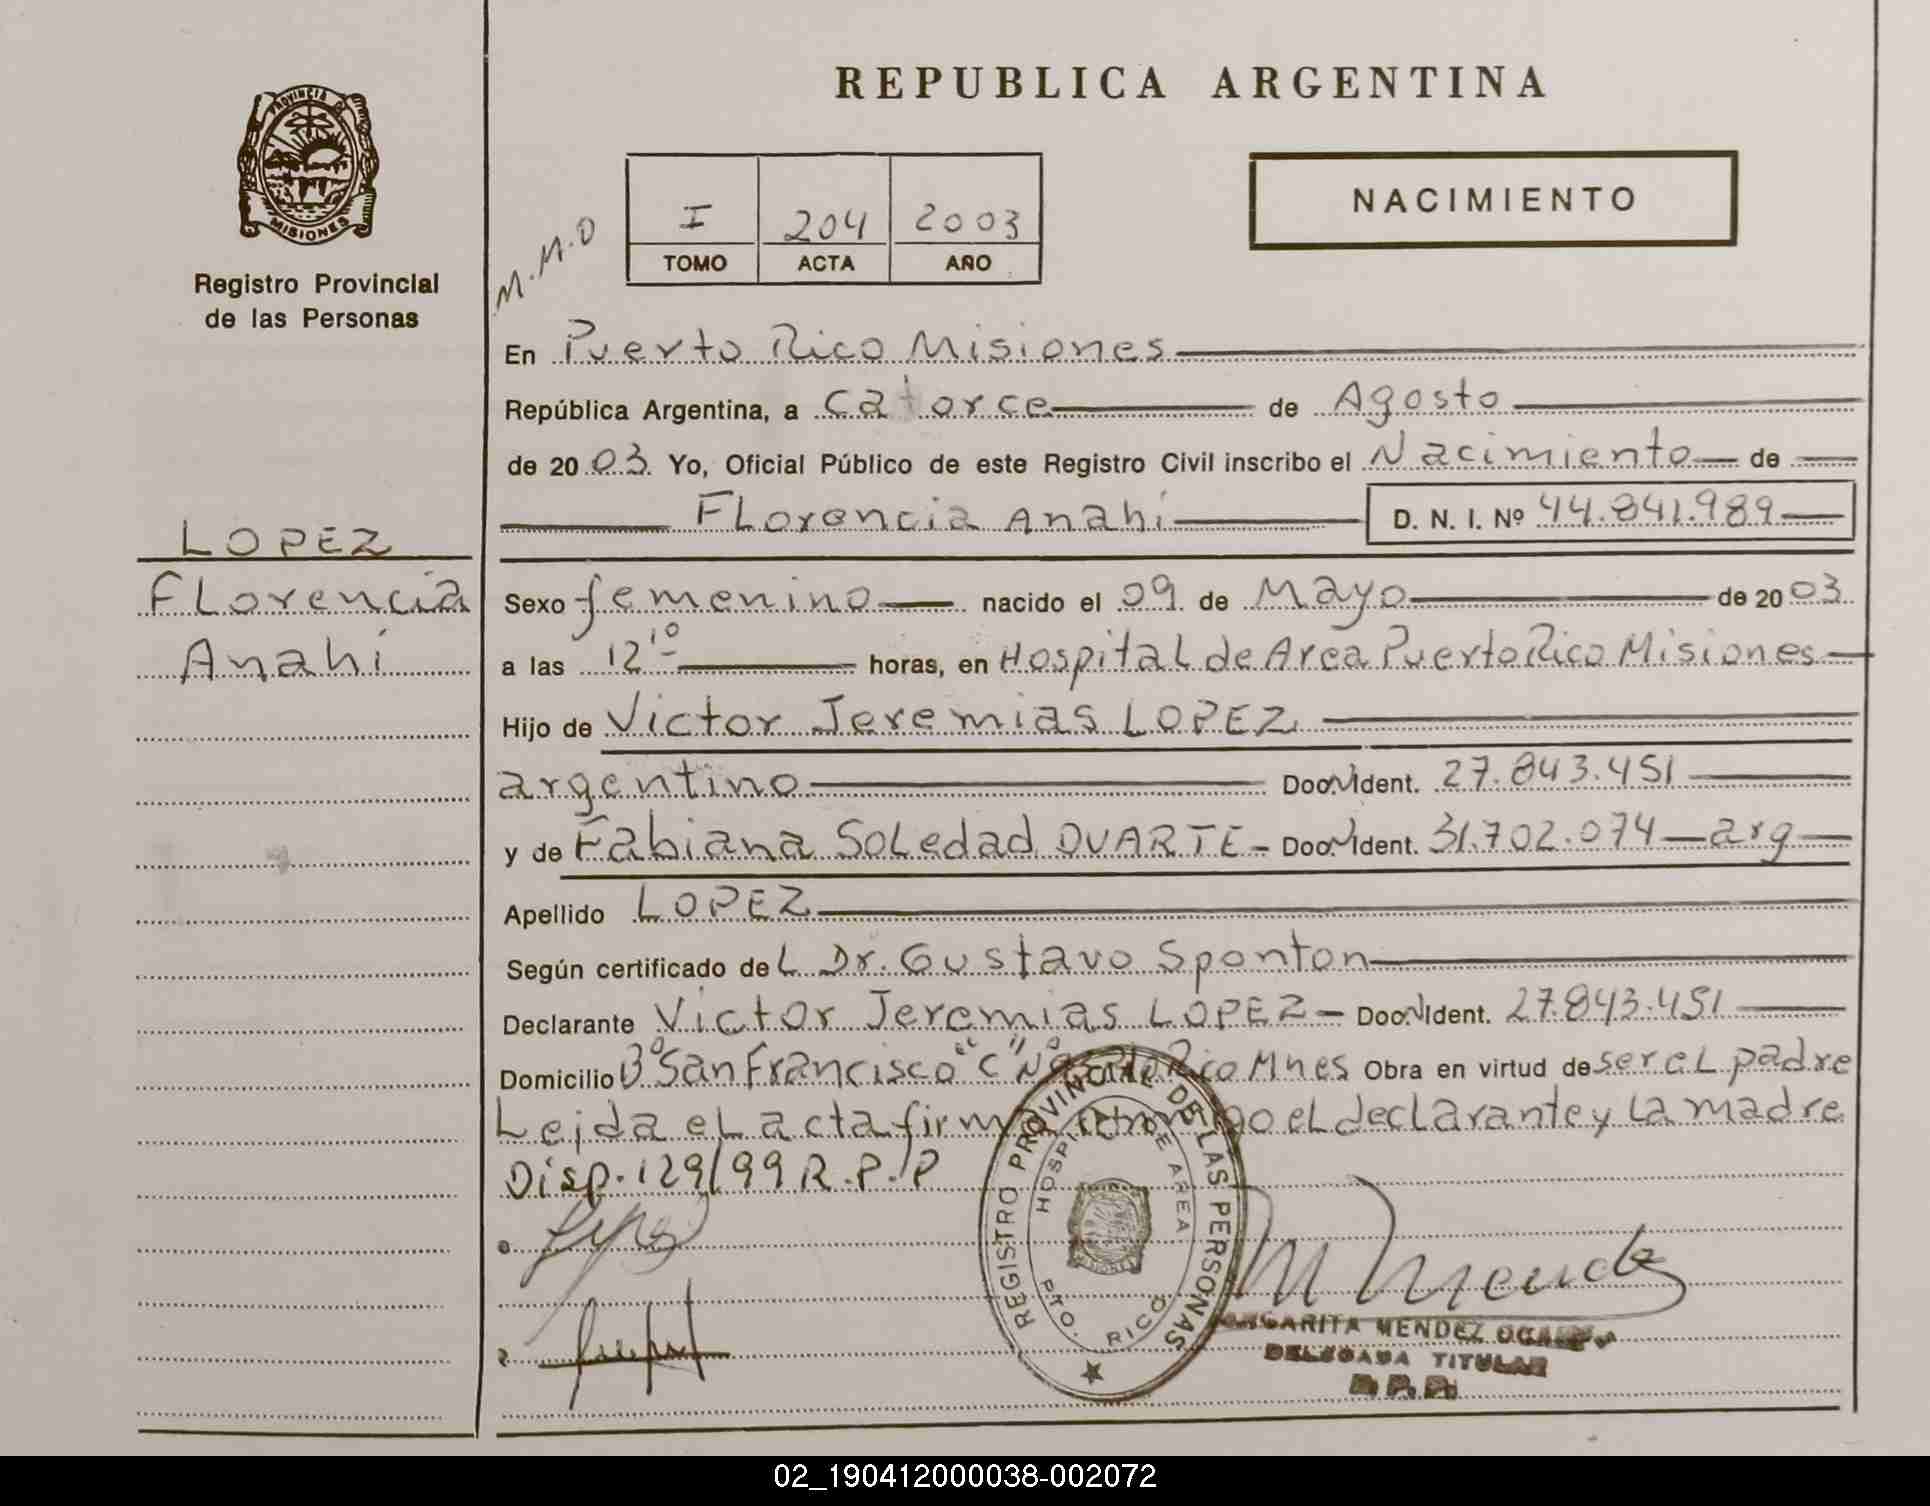 REPUBLICA ARGENTINA
PROVINCIA DE
MISIONES
Registro Provincial
de las Personas
M.M.O
I 204 2003
TOMO ACTA AÑO
NACIMIENTO
En Puerto Rico Misiones
República Argentina, a catorce de Agosto
de 2003 Yo, Oficial Público de este Registro Civil inscribo el Nacimiento de
Florencia Anahí D. N. I. Nº 44.841.989
LOPEZ
Florencia
Anahí
Sexo femenino nacido el 09 de Mayo de 2003
a las 12¹⁰ horas, en Hospital de Area Puerto Rico Misiones
Hijo de Victor Jeremias LOPEZ
argentino Doc. Ident. 27.843.451
y de Fabiana Soledad DUARTE - Doc. Ident. 31.702.074 - arg
Apellido LOPEZ
Según certificado del Dr. Gustavo Sponton
Declarante Victor Jeremias LOPEZ - Doc. Ident. 27.843.451
Domicilio Bº San Francisco "C" Rico Mnes Obra en virtud de ser el padre
Leida el acta el declarante y la madre
Disp. 129/99 R.P.P
REGISTRO PROVINCIAL DE LAS PERSONAS
HOSPITAL DE AREA
PTO. RICO
MISIONES
MARGARITA MENDEZ
DELEGADA TITULAR
R.P.P.
02_190412000038-002072